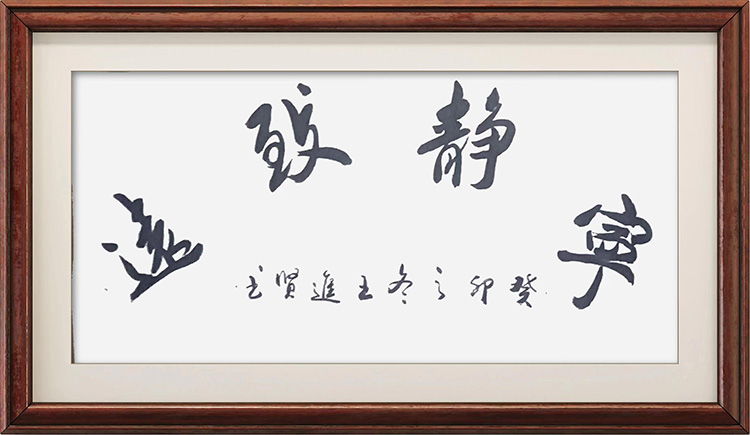 寧静致遠
癸卯之冬王進賢书